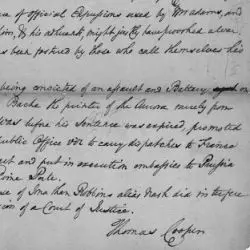 of official Expressions used by Mr Adams, and
him, & his adherents, might justly have provoked a less
been fostered by those who call themselves his
being convicted of an assault and Battery on
Bache the printer of the Aurora merely from
was before his Sentence was expired, promoted
Public Office viz to carry dispatches to France
and put in execution embassies to Russia
Porte.
of Jonathan Robbins alias Nash did interfere
of a Court of Justice.
Thomas Cooper